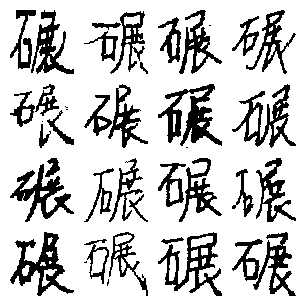 碾碾碾碾
碾碾碾碾
碾碾碾碾
碾碾碾碾